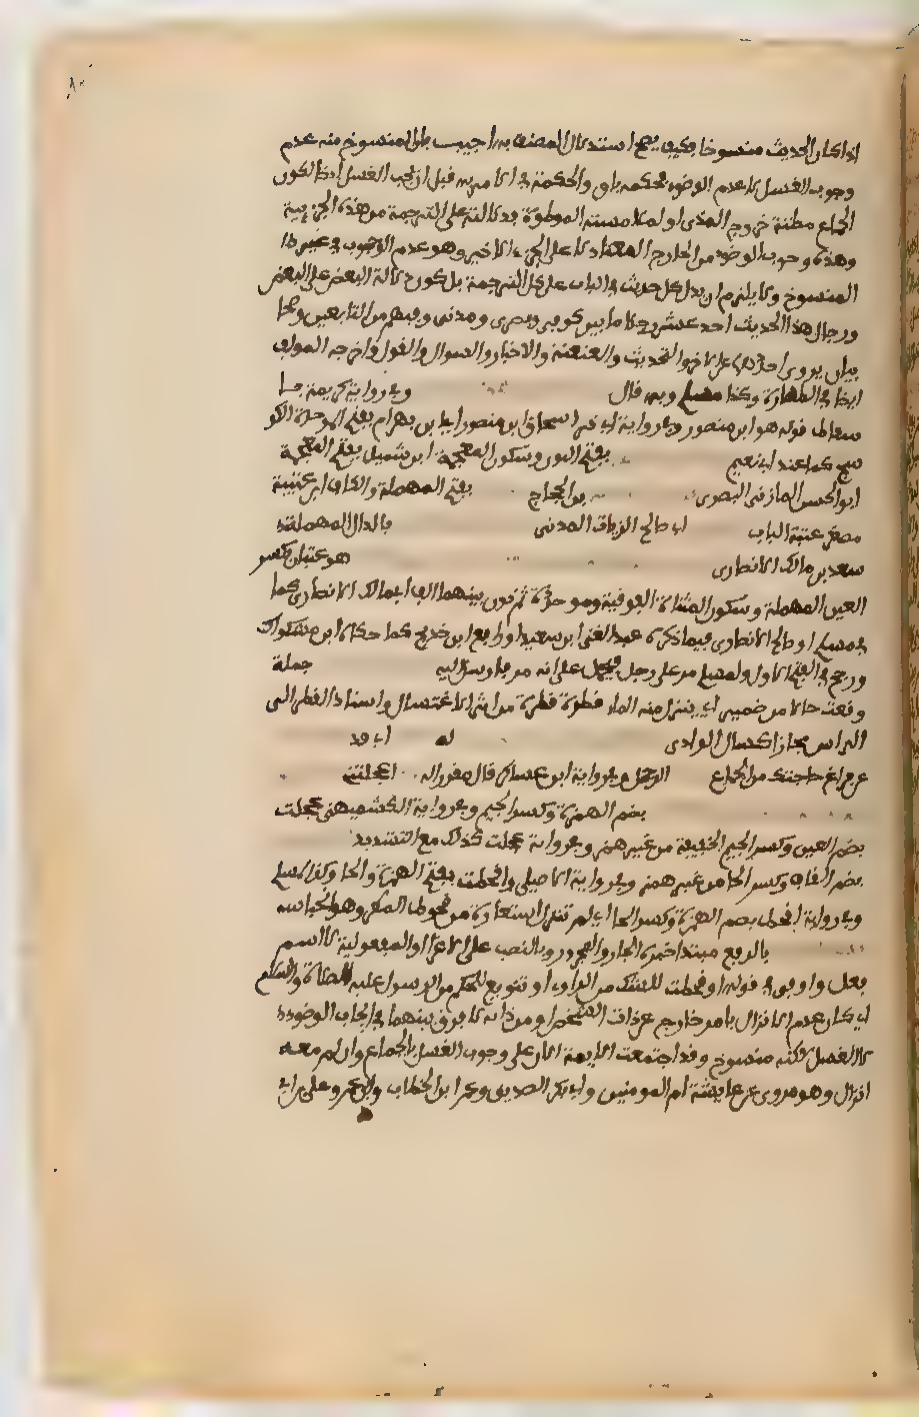 اذا كان الحديث منسوخا فكيف يصح استدلال المصنف به اجيب بان المنسوخ منه عدم
وجوب الغسل لا عدم الوضوء فحكمه باق والحكمة في الامر به قبل ان يجب الغسل اما لكون
الجماع مظنة خروج المذي او لملامسته الموطوءة فدلالته على الترجمة من هذه الجزيية
وهذه وجوب الوضوء من الخارج المعتاد لا على الجزء الاخير وهو عدم الوجوب في غيره
المنسوخ ولا يلزم ان يدل كل حديث في الباب على كل الترجمة بل تكون دلالة البعض على البعض
ورجال هذا الحديث احد عشر رجلا ما بين كوفي وبصري ومدني وفيهم من التابعين
يروي احدهم عن الاخر التحديث والعنعنة والاخبار والسوال والقول واخرجه المولف
ايضا في الطهارة وكذا مسلم وبه قال وفي رواية كريمة
قوله هو ابن منصور وفي رواية ابي ذر اسحاق ابن منصور اي ابن بهرام بفتح الموحدة
كما عند ابي نعيم بفتح النون وسكون المعجمة ابن شميل بفتح المعجمة
ابو الحسن المازني البصري بن الحجاج بفتح المهملة والكاف ابن عتيبة
مصغر عتبة الباب ابي صالح الزيات المدني بالدال المهملة
سعد بن مالك الانصاري هو عتبان بكسر
العين المهملة وسكون المثناة الفوقية وموحدة ثم نون بينهما الف ابن مالك الانصاري كما
في مسلم او صالح الانصاري فيما ذكره عبد الغني ابن سعيد او رافع ابن خديج كما حكاه ابن بشكوال
ورجح في الفتح الاول ولمسلم مر على رجل فيحمل على انه مر به فارسل اليه جملة
وقعت حالا من ضمير اي ينزل منه الماء قطرة قطرة من اثر الاغتسال واسناد القطر الى
الراس مجاز كسال الوادي له اي قد
عن فراغ حاجتك من الجماع الرجل وفي رواية ابن عساكر قال مقررا له اعجلتني
بضم الهمزة وكسر الجيم وفي رواية الكشميهني عجلت
بضم العين وكسر الجيم الخفيفة من غير همز وفي رواية عجلت كذلك مع التشديد
بضم القاف وكسر الحا من غير همز وفي رواية الاصيلي واقحطت بفتح الهمزة والحا وكذا لمسلم
وفي رواية اقحط بضم الهمزة وكسر الحا اي لم تنزل استعارة من قحوط المطر وهو انحباسه
بالرفع مبتدا خبره الجار والمجرور وبالنصب على الاغرا او المفعولية لاسم
فعل واو في قوله او قحطت للشك من الراوي او تنويع الحكم من الرسول عليه الصلاة والسلام
اي كان عدم الانزال بامر خارج عن ذات الشخص او من ذاته لا فرق بينهما في ايجاب الوضوء
لا الغسل لكنه منسوخ وقد اجتمعت الايمة الان على وجوب الغسل بالجماع وان لم معه
انزال وهو مروي عن عايشة ام المومنين وابي بكر الصديق وعمر ابن الخطاب وابن عمر وعلي بن ابي